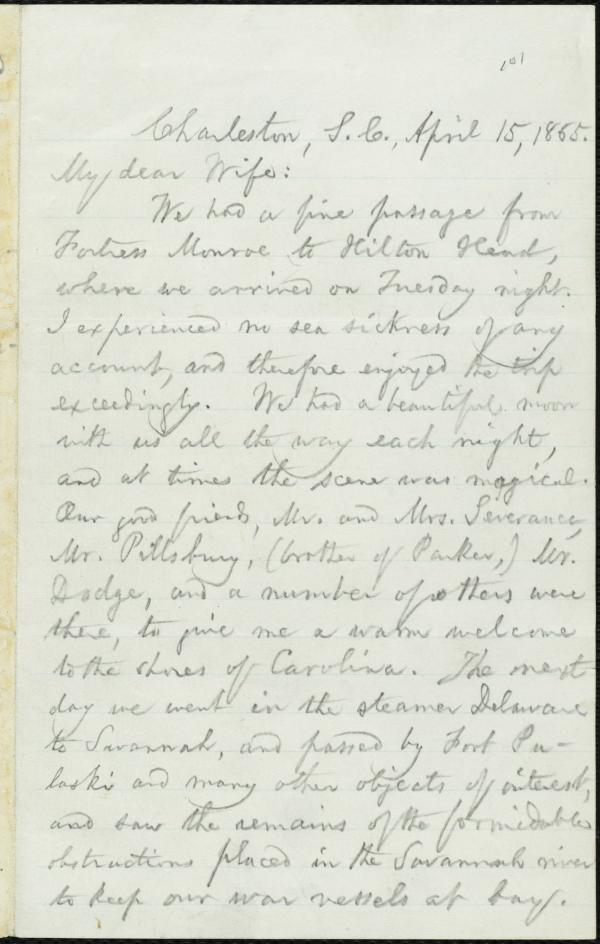 101
Charleston, S. C., April 15, 1865.
My dear Wife:
We had a fine passage from
Fortress Monroe to Hilton Head,
where we arrived on Tuesday night.
I experienced no sea sickness of any
account, and therefore enjoyed the trip
exceedingly. We had a beautiful moon
with us all the way each night,
and at times the scene was magical.
Our good friends, Mr. and Mrs. Severance,
Mr. Pillsbury, (brother of Parker,) Mr.
Dodge, and a number of others were
there, to give me a warm welcome
to the shores of Carolina. The next
day we went in the steamer Delaware
to Savannah, and passed by Fort Pu-
laski and many other objects of interest,
and saw the remains of the formidable
obstructions placed in the Savannah river
to keep our war vessels at bay.